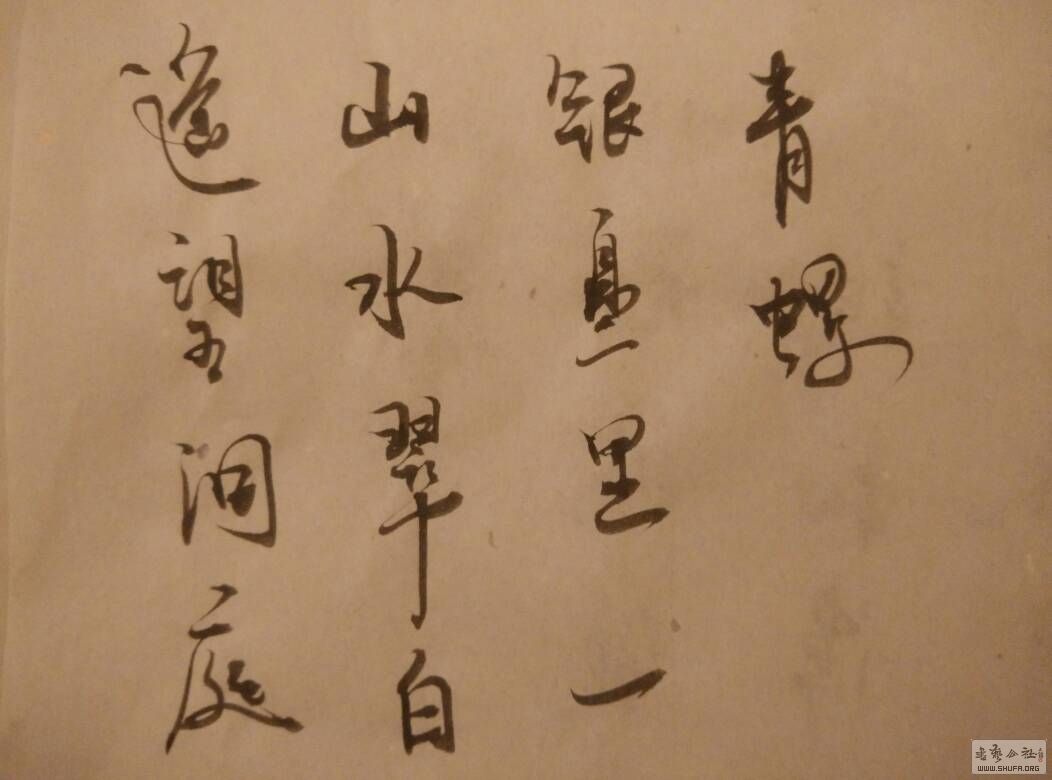 遥望洞庭
山水翠白
银盘里一
青螺
書藝公社
WWW.SHUFA.ORG